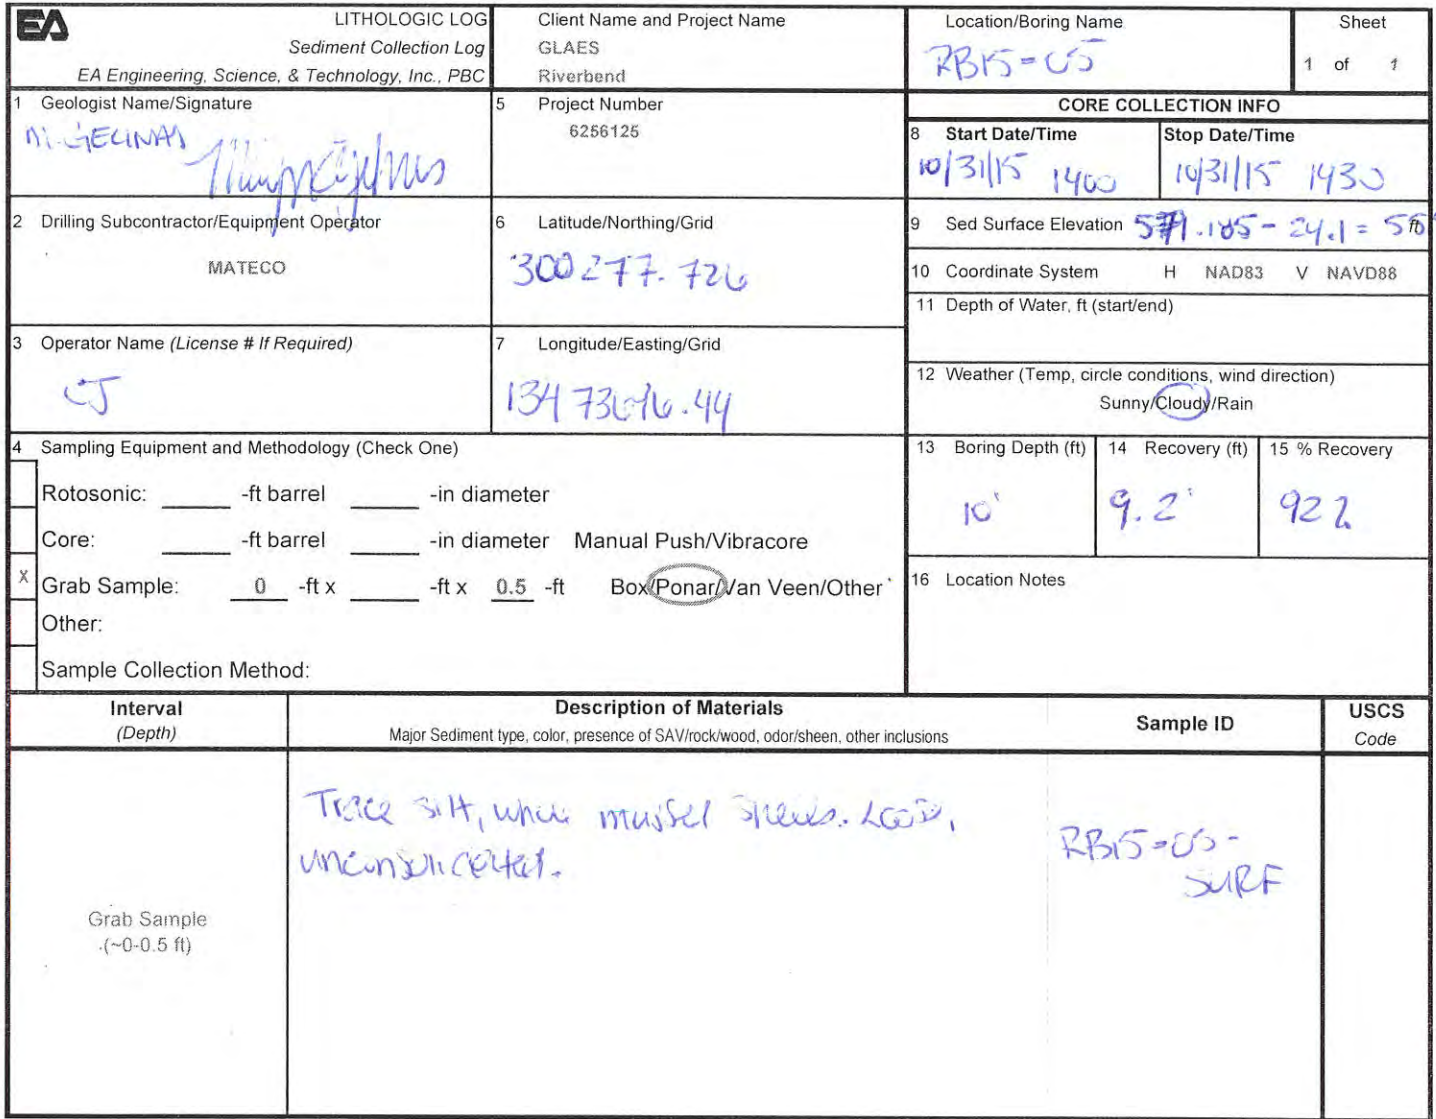 EA
LITHOLOGIC LOG
Sediment Collection Log
EA Engineering, Science, & Technology, Inc., PBC
Client Name and Project Name
GLAES
Riverbend
Location/Boring Name
RB15-05
Sheet
1 of 1
1 Geologist Name/Signature
M. GELINAS
5 Project Number
6256125
CORE COLLECTION INFO
8 Start Date/Time
10/31/15 1400
Stop Date/Time
10/31/15 1430
2 Drilling Subcontractor/Equipment Operator
MATECO
6 Latitude/Northing/Grid
300277.726
9 Sed Surface Elevation - 24.1 = ft
10 Coordinate System H NAD83 V NAVD88
11 Depth of Water, ft (start/end)
3 Operator Name (License # If Required)
CJ
7 Longitude/Easting/Grid
12 Weather (Temp, circle conditions, wind direction)
Sunny/Cloudy/Rain
4 Sampling Equipment and Methodology (Check One)
Rotosonic: ____ -ft barrel ____ -in diameter
Core: ____ -ft barrel ____ -in diameter Manual Push/Vibracore
X Grab Sample: 0 -ft x ____ -ft x 0.5 -ft Box/Ponar/Van Veen/Other
Other:
Sample Collection Method:
13 Boring Depth (ft)
10'
14 Recovery (ft)
9.2'
15 % Recovery
92%
16 Location Notes
Interval
(Depth)
Description of Materials
Major Sediment type, color, presence of SAV/rock/wood, odor/sheen, other inclusions
Sample ID
USCS
Code
Trace silt, whole mussel shells.
unconsolidated.
RB15-05-
SURF
Grab Sample
(~0-0.5 ft)